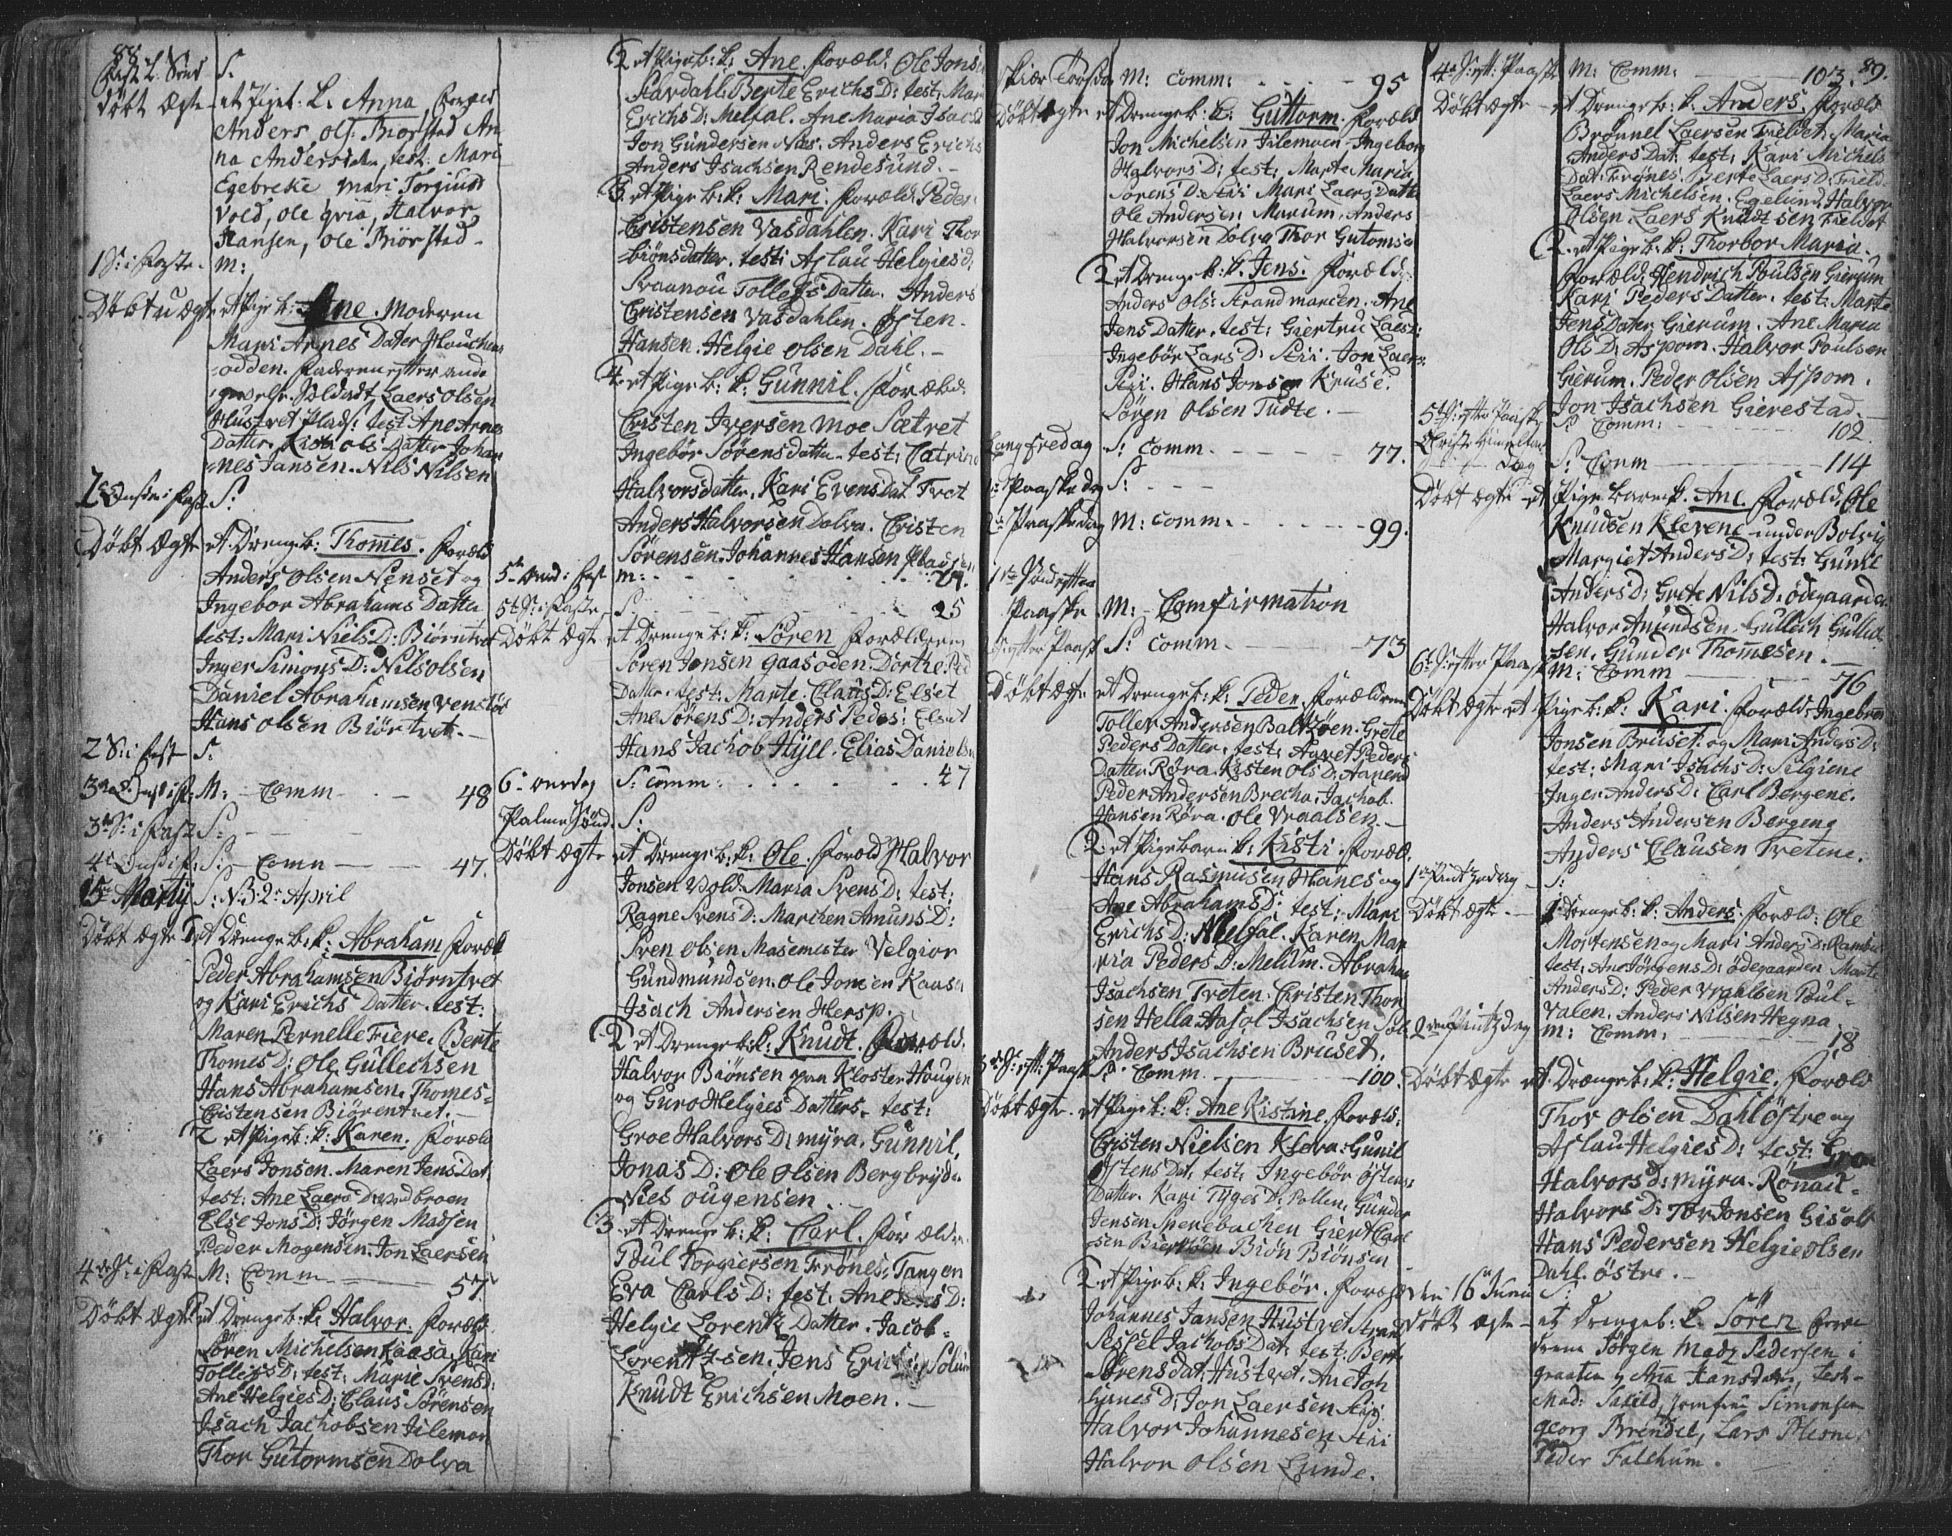 88.
Fast. L. Sønd S.
Døbt Ægte et Pigeb. k. Anna, Foræld
Anders Ols. Biørstad An-
na Andersdr, test. Mari
Egebreke, Mari Torgiuus
Vold, Ole qvia, Halvor
Hansen, Ole Biørstad.
1 S: i Faste. M:
Døbt u Ægte et Pige b: Ane. Moderen
Mari Arnes Datter Houchens
odden. Faderen efter ande
givelse. Soldadt Laers Olsen
Hustvet Plads: test Ane Arnes
Datter. Kisti Ols Datter Johan
nes Jansen. Nils Nilsen
2de Onsd: i Fast S:
Døbt Ægte et Drengeb: Thomes. Foræld
Anders Olsen Nenset og
Ingebor Abrahams Datter
test: Mari Niels D: Biørntvet
Inger Simons D: Nils Olsen
Daniel Abrahamsen Venstøb
Hans Olsen Biørtvet.
2 S: i Fast S:
3de Onsd i F: M: - Comm - 48
3de S: i Fast S:
4de Onsd i F: S: - Comm - 47.
15de Martij S: NB 2de April
Døbt Ægte 1 et Drengeb: k: Abraham Foræld
Peder Abrahamsen Biørntvet
og Kari Erichs Datter. test:
Maren Pernelle Fiere. Berte
Thomes D: Ole Gullechsen
Hans Abrahamsen. Thomes
Cristensen Biørentvet.
2 et Pigeb: k: Karen. Foræld
Laers Jonsen. Maren Jens Dat
test: Ane Laers D: ved broen
Else Jons D: Jørgen Madsen
Peder Mogensen. Jon Laersen
4de S: i Faste M: Comm 57
Døbt Ægte et Drengeb: k. Halvor. Foræld
Søren Michelsen Kaasa. Kari
Tollefs D: test: Marie Svens D:
Ane Helgies D: Claus Sørensen
Isach Jachobsen Jilemon
Thor Gutormsen Dolva
2 et Pigeb: k: Ane. Foræld: Ole Jonsen
Stavdahl. Berte Erichs D: test: Mari
Erichs D: Melfal. Ane Maria Isachs
Jon Gundersen Næs. Anders Erichs
Anders Isachsen Rendesund.
3. et Pigeb: k: Mari. Foræld: Peder
Cristensen Vasdahlen. Kari Thor
biønsdatter. test: Aslau Helgies D:
Svaanou Tollefs Datter. Anders
Christensen Vasdahlen. Østen
Hansen. Helgie Olsen Dahl.
4. et Pige b: k: Gunnil. Foræld:
Cristen Iversen Moe Sætret
Ingebør Sørensdatter. test: Catrine
Halvorsdatter. Kari Evens Dat Tvet
Anders Halvorsen Dolva. Cristen
Sørensen. Johannes Hansen
5te Onsd: i Fast M: 24.
5te S: i Faste S: 25
Døbt Ægte et Drengeb: k: Søren Forælderene
Søren Jonsen Gaasoden. Dorthe Ped
Datter. test: Marte. Claus D: Elset
Ane Sørens D: Anders Peders: Elset
Hans Jachob Hyll. Elias Daniels
6te onsdag S: Comm: 47
Palme Sønd. S:
Døbt Ægte et Drengeb: k: Ole. Foræld Halvor
Jonsen Vold. Maria Svens D: test:
Ragne Svens D: Marchen Amuns D:
Sven Olsen Masemester Velgior
Gundmundsen. Ole Jonsen Kaasa
Isach Andersen Hersp.
2 et Drengeb: k: Knudt. Foræld:
Halvor Biønsen paa Kloster Hougen
og Guro Helgies Datters. test:
Groe Halvors D: Myra. Gunnil,
Jonas D: Ole Olsen Bergbryd
Nies Ougensen
3 et Drengeb: k: Carl. Forældre
Poul Torgiersen Frønes: Tangen
Eva Carls D: test: Ane Jens D:
Helgie Lorentz Datter. Jacob
Lorentzsen. Jens Erich: Solum
Knudt Erichsen Moen.
Skiær Torsdag M: Comm: 95
Døbt Ægte et Drengeb: k: Guttorm. Foræld
Jon Michelsen Jilemoen. Ingeborg
Halvors D: test: Marte Maria
Sørens D: Stri Mari Laers Datter
Ole Andersen Marum. Anders
Halvorsen Dolva Thor Gutomsen
2 et Drengeb: k. Jens. Foræld:
Anders Ols: Strandmarcen. Ane
Jens Datter. test: Giertru Laers:
Ingebør Laers D: Stri. Jon Laers:
Stri. Hans Jonsen Kruse.
Søren Olsen Tudte.
Langfredag S: Comm. 77.
1te Paaskedag S:
2de Paaskedag M: Comm. 99.
1te Sønd efter
Paaske M: - Comfirmation
2 S: efter Paask S: Comm. 73
Døbt Ægte et Drengeb: k: Peder. Forældrene
Tollef Andersen Baltzøen. Grete
Peders Datter. test: Agnet Peders
Datter Røra. Kisten Ols D: Aanerud
Peder Andersen Brecha. Jachob
Hansen Røra. Ole Vraalsen.
2 et Pigebarn k: Kisti. Foræld.
Hans Rasmusen Hanes og
Ane Abrahams D: test: Mari
Erichs D: Melfal. Karen Mar
ria Peders D: Melum. Abraham
Isachsen Tveten. Christen Thor
sen Hella. Aasol Isachsen
Anders Isachsen Bruset.
3de S: eft: Paask S: Comm. 100.
Døbt Ægte. et Pigeb: k: Ane Kistine. Foræld:
Cristen Nielsen Kleva. Gunil
Østens Dat. test: Ingebør Østens
Datter. Kari Tyges D: Pollen. Gunder
Jensen Sperebachen Giert Carl
sen Bierketøen Biøn Biønsen
2 et Pigeb: k: Ingebør. Foræld
Johannes Jansen Hustvet
Sessel Jachobs Dat. test: Bert
Sørens dat Hustvet. Ane Joh
annes D: Jon Laersen Stri
Halvor Johannesen Stri
Halvor Olsen Lunde.
89.
4de S: eft: Paask M: Comm. 103.
Døbt Ægte et Drengeb: k: Anders. Foræld
Brønnel Laersen Fieldet. Maria
Anders Dat. test: Kari Michels
Dat: Frønes. Berte Laers D: Field
Laers Michelsen. Egelund. Halvor
Olsen. Laers Knudtsen Fieldet
2. et Pigeb: k: Thorbor Maria.
Foræld: Hendrich Poulsen Gierum
Kari Peders Datter. test: Marte
Jens Datter Gierum. Ane Maria
Ols D: Aspom. Halvor Poulsen
Gierum. Peder Olsen Aspom.
Jon Isachsen Gierestad.
5te S: efter Paaske S: Comm: 102
Christi Himmelfart
Dag S: Comm 114
Døbt Ægte et Pigebarn k. Ane. Foræld: Ole
Knudsen Klevene under Bolvig
Margiet Anders D: test: Gunil
Anders D: Grete Nils D: Ødegaarden
Halvor Amundsen. Gullech Gullich
sen. Gunder Thomesen.
6te S: efter Paask M: Comm 76
Døbt Ægte et Pigeb: k: Kari. Foræld: Ingebret
Jonsen Bruset. og Mari Anders D:
test: Mari Isachs D: Silgiene
Inger Anders D: Carl Bergene.
Anders Andersen Bergene
Anders Clausen Tretene.
1te Pintzedag S:
Døbt Ægte. 1 Drengeb: k: Anders. Foræld: Ole
Mortensen og Mari Anders D:
test: Ane Jørgens D: Ødegaarden Marte
Anders D: Peder Vrahlsen Poul-
Valen. Anders Nilsen Hegna
2den Pintzdag M: Comm. 18
Døbt Ægte et Drengeb: k: Helgie. Foræld
Thor Olsen Dahl Østre og
Aslau Helgies D: test: Groe
Halvors D: Myra. Rønau
Halvors D: Tor Jonsen Gisolt
Hans Pedersen Helgie Olsen
Dahl Østre.
den 16de Junii S:
Døbt Ægte et Drengeb: k. Søren Foræl
drene Jörgen Madz Pedersen i
graaten og Anna Hansdatter, test.
Mad: , Jomfrue Simonsen
georg Brendel, Lars Plesner
Peder Falchum.